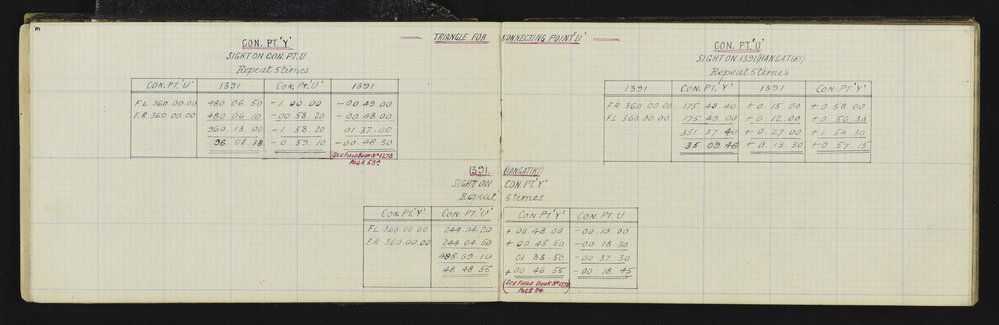 3
TRIANGLE FOR CONNECTING POINT 'U'
CON. PT 'Y'
SIGHT ON CON. PT. U
Repeat 5 times
CON. PT. 'U' 1391 CON. PT. 'U' 1391
F.L. 360.00.00 480 06 50 -1 00 00 -00.49.00
F.R. 360.00.00 480 06 10 -00 58 20 -00 48 00
960 13 00 -1 58 20 01 37 00
96 01 18 -0 59 10 -00 48 30
SEE FIELD BOOK No 1278
PAGE 53
CON. PT. 'U'
SIGHT ON 1391 (HANGATIKI)
Repeat 5 times
1391 CON. PT. 'Y' 1391 CON. PT. 'Y'
F.R 360.00.00 175 48 40 +0 15 00 +0 58 00
F.L 360.00.00 175 49 00 +0 12 00 +0 56 30
351 37 40 +0 27 00 +1 54 30
35 09 46 +0 13 30 +0 57 15
1391 (HANGATIKI)
SIGHT ON CON. PT. 'Y'
Repeat 5 times
CON. PT. 'Y' CON. PT. 'U' CON. PT 'Y' CON. PT. U
F.L. 360.00.00 244 04 20 +00 48 00 -00 19 00
F.R 360.00.00 244 04 50 +00 45 50 -00 18 30
488 09 10 01 33 50 -00 37 30
48 48 55 +00 46 55 -00 18 45
(SEE FIELD BOOK No 1278
PAGE 54)